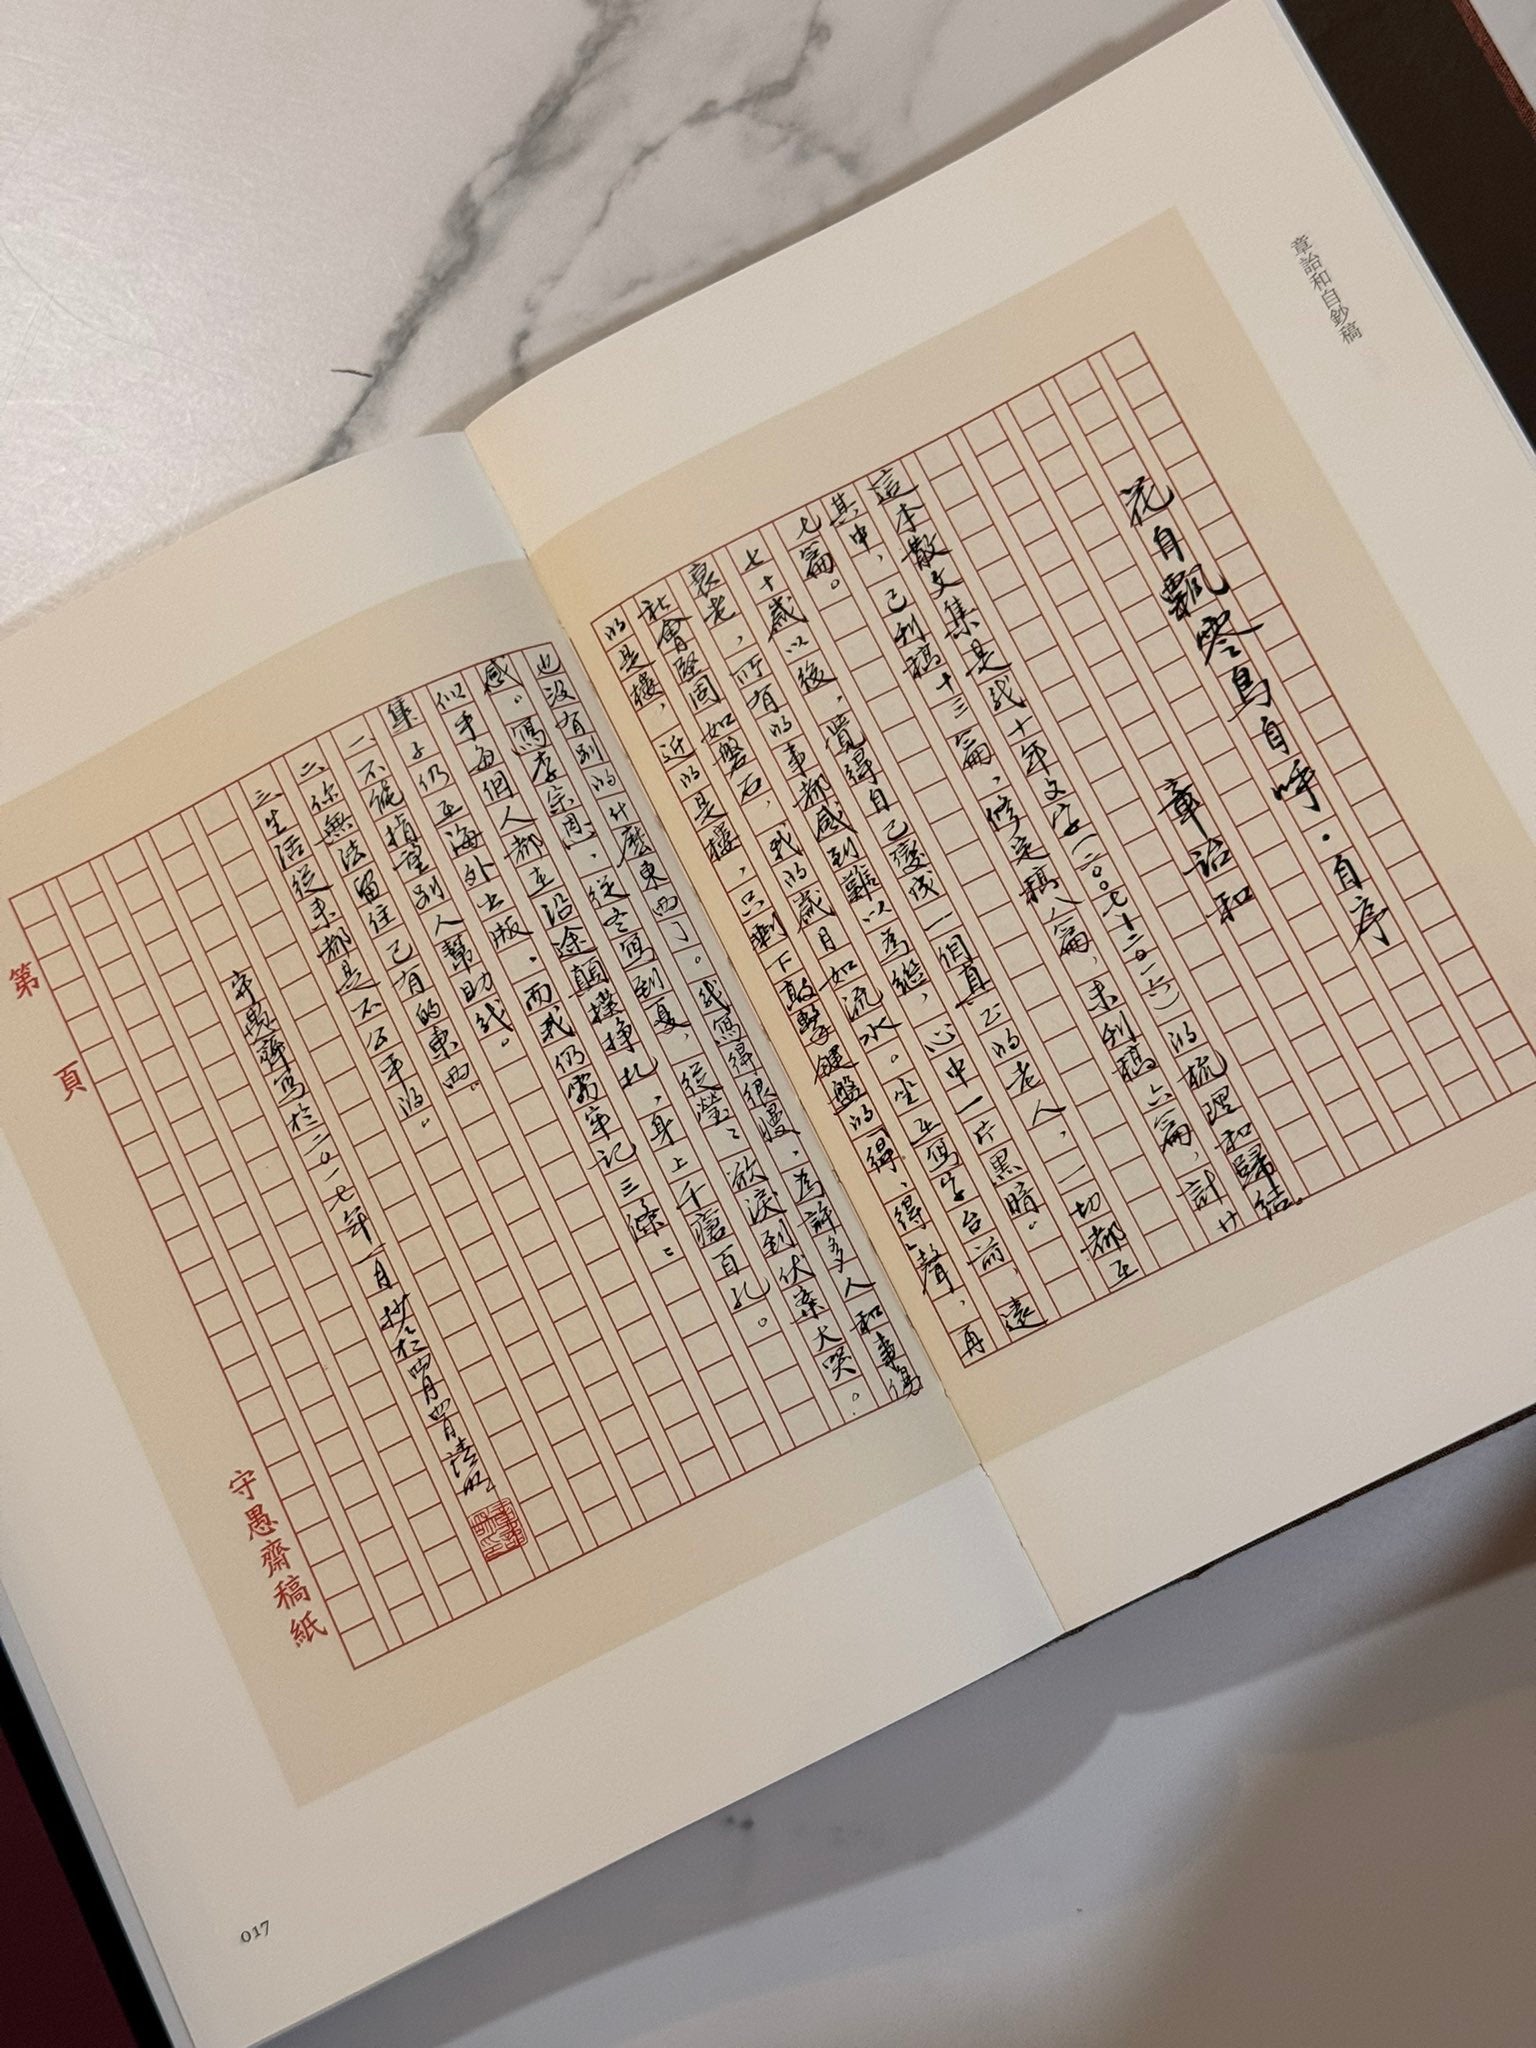 章詒和自鈔稿
花自飄零鳥自呼·自序
章詒和
這本散文集是我十年文字(二〇〇七—二〇一六)的梳理和歸結。
其中,已刊稿十三篇,修定稿八篇,未刊稿六篇,計廿
七篇。
七十歲以後,覺得自己變成一個真正的老人,一切都在
衰老,所有的事都感到難以為繼,心中一片黑暗。
社會堅固如磐石,我的歲月如流水。坐在寫字台前,遠
的是樓,近的是樓,只剩下敲擊鍵盤的「得、得」聲,再
也沒有別的什麼東西了。我寫得很慢,為許多人和事傷
感。寫李宗恩,從冬寫到夏,從瑩瑩欲淚到伏案大哭。
似乎每個人都在沿途顛撲掙扎,身上千瘡百孔。
集子仍在海外出版,而我仍需牢記三條:
一、不能指望別人幫助我。
二、你無法留住已有的東西。
三、生活從來都是不公平的。
守愚齋寫於二〇一七年一月抄於四月四日清明
第 頁
守愚齋稿紙
017